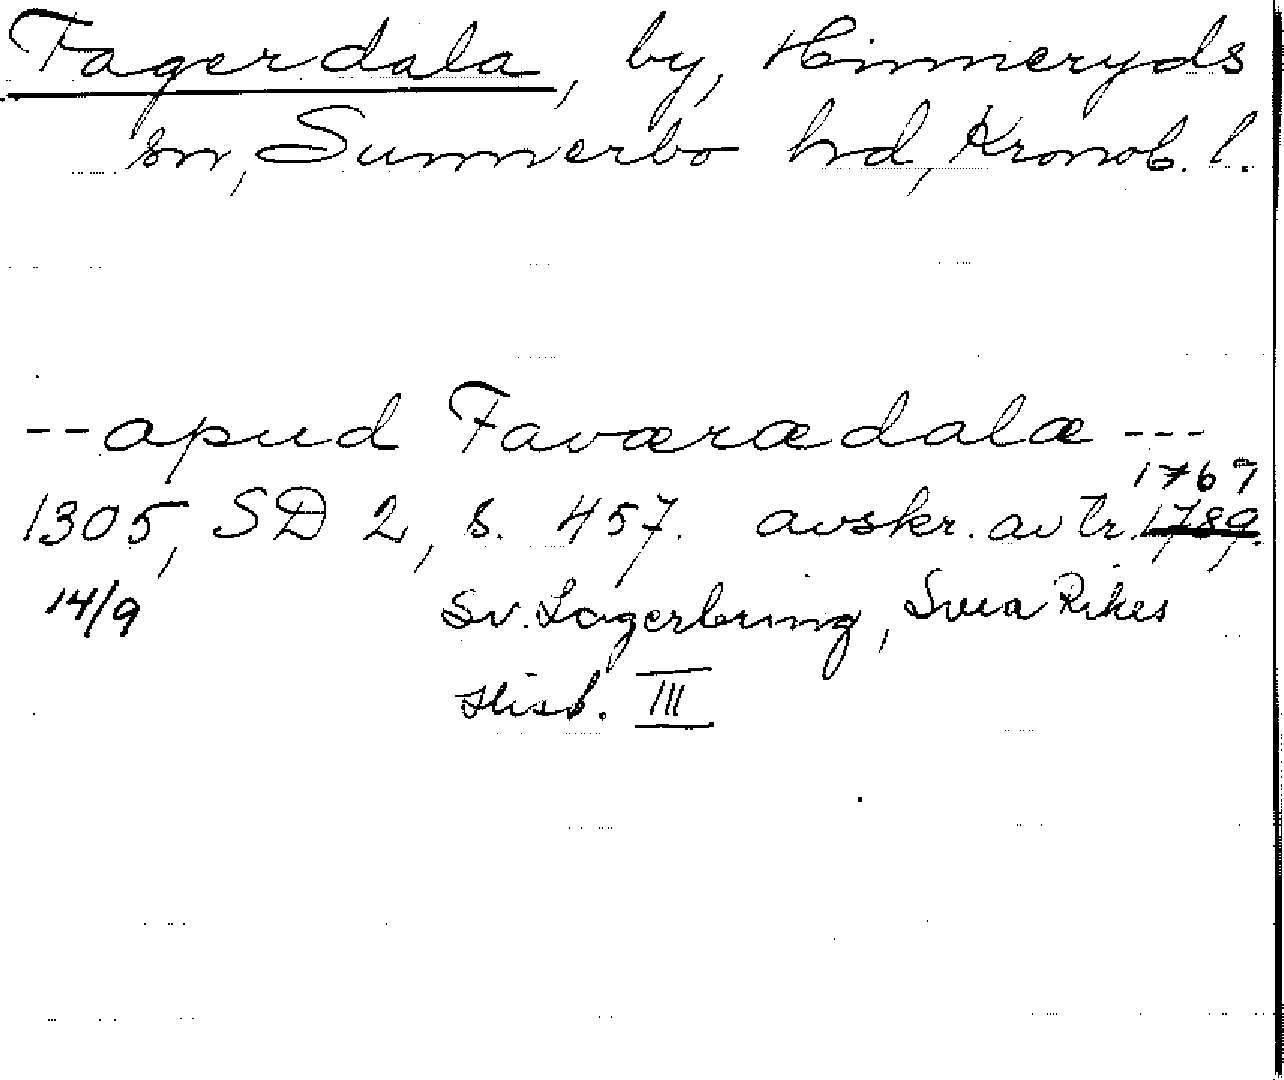 Fagerdala, by, Hinneryds
sn, Sunnerbo hd, Kronob. l.
--apud Faværædalæ---
1767
1305, SD 2, s. 457. avskr. av tr. 1789.
14/9 Sv. Lagerbring, Svea Rikes
Hist. III